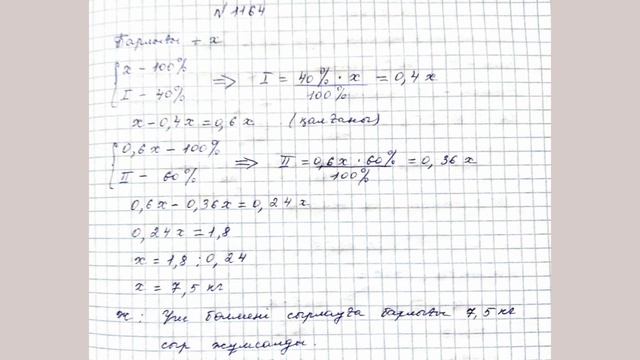 N 1164
Барлығы - x
x - 100%
I - 40%
=> I = 40% · x / 100% = 0,4 x
x - 0,4x = 0,6x (қалғаны)
0,6x - 100%
II - 60%
=> II = 0,6x · 60% / 100% = 0,36x
0,6x - 0,36x = 0,24x
0,24x = 1,8
x = 1,8 : 0,24
x = 7,5 кг
Ж: Үш бөлмені сырлауда барлығы 7,5 кг
сыр жұмсалды.